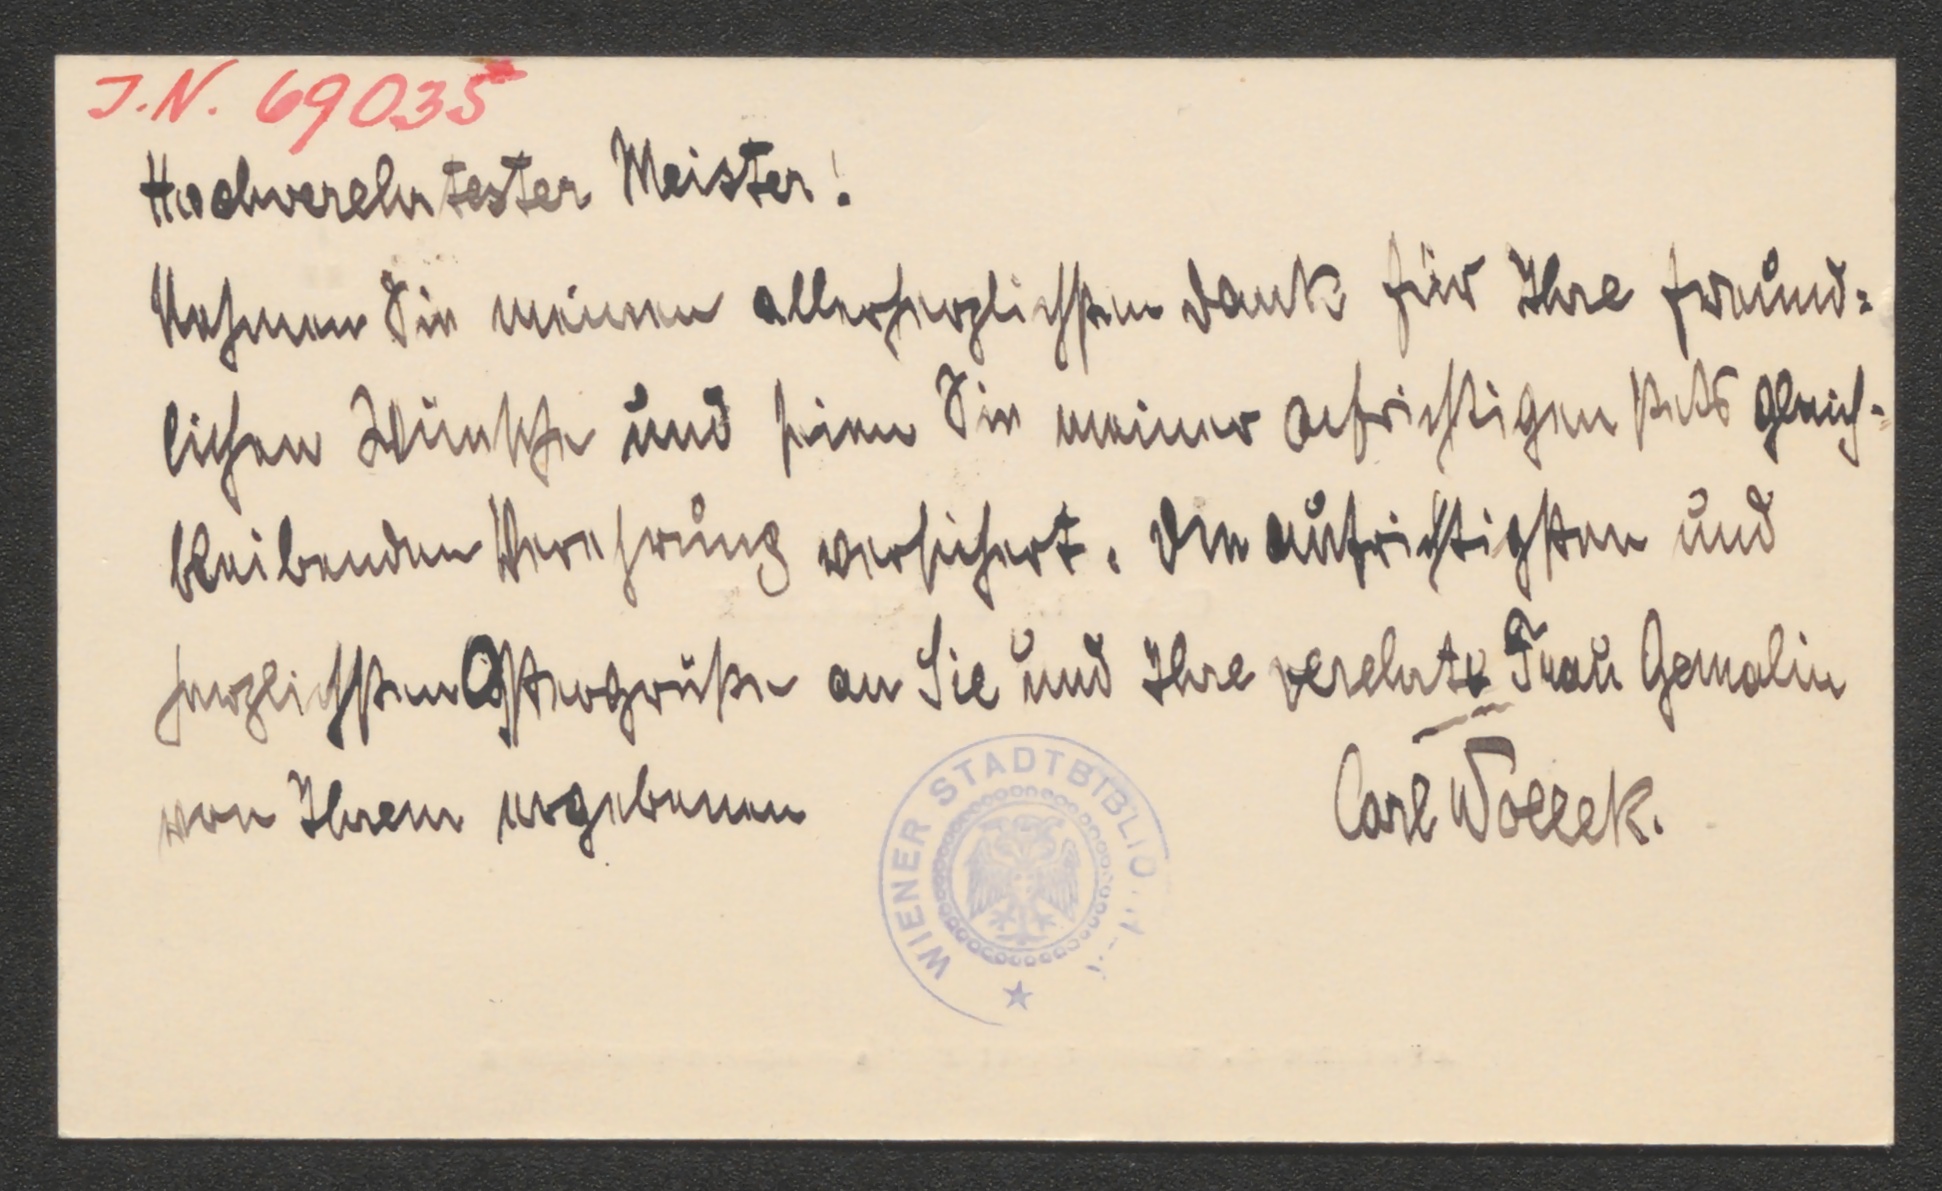 J.N. 69035
Hochverehrtester Meister!
Nehmen Sie meinen allerherzlichsten Dank für Ihre freund-
lichen Wünsche und seien Sie meiner aufrichtigen stets gleich-
bleibenden Verehrung versichert. Die aufrichtigsten und
herzlichsten Ostergrüße an Sie und Ihre verehrte Frau Gemalin
von Ihrem ergebenen
Carl Wollek.
WIENER STADTBIBLIO